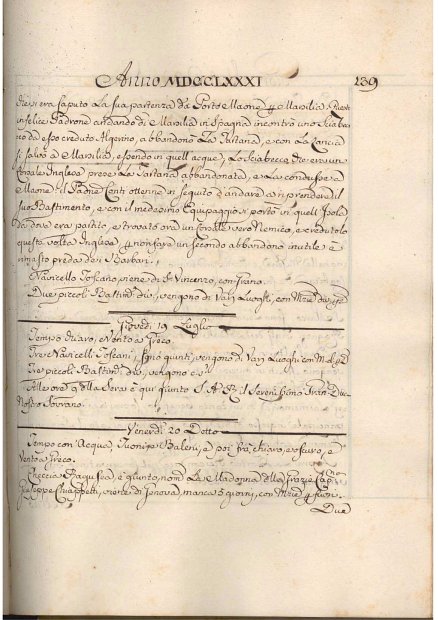 Anno MDCCLXXXI 139
si era saputo La sua partenza da Porto Maone p Marsilia. Questo
infelice Padrone andando di Marsilia in Spagna incontrò uno Sciabec
co da esso creduto Algerino, abbandonò La Tartana, e con La Lancia
si salvò a Marsilia, essendo in quell acque, Lo Sciabecco era un
Corsale Inglese prese La Tartana abbandonata, e La condusse a
Maone il Padrone Conti ottenne in seguito d'andare a riprendere il
suo Bastimento, e con il medesimo Equipaggio si portò in quell Isola
Da dove era partito, e trovato ora un Corsale vero Nemico, e credutolo
questa volta Inglese p non fare un secondo abbandono inutile è
rimasto preda dei Barbari.
Navicello Toscano, viene di S. Vincenzo, con Grano.
Due piccoli Bastim. div., vengono di Varj Luoghi, con Mzie div.
Giovedì 19 Luglio
Tempo chiaro, e Vento a Greco.
Tre Navicelli Toscani, sono giunti, vengono di Varj Luoghi con M.
Tre piccoli Bastim. div. vengono c. s.
Alle ore 9 della Sera è qui giunto S. A. R. il Serenissimo Gran Duca
Nostro Sovrano.
Venerdì 20 Detto
Tempo con Acqua, Tuoni, e Baleni, e poi fra chiaro, e oscuro, e
Vento a Greco.
Checcia Ragusea è giunta, nom. La Madonna della Grazia, Cap.
Giuseppe Chiappetti, viene di Genova, manca 5 giorni, con Mzie p fuori.
Due